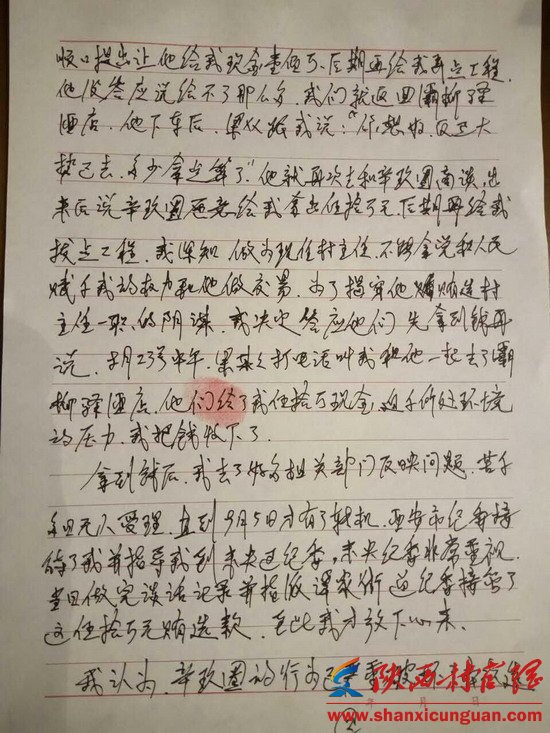 顺口提出让他给我现金壹佰万、后期再给我弄点工程,
他没答应说给不了那么多,我们就返回灞柳驿
酒店,他下车后,梁仪跟我说:“你想好,反正大
势已去,多少拿点算了”他就再次去和辛玖围商谈,出
来后说辛玖围愿意给我拿出伍拾万元,后期再给我
拨点工程,我深知做为现任村主任,不能拿党和人民
赋予我的权力和他做交易,为了揭穿他贿选村
主任一职的阴谋,我决定答应他们先拿到钱再
说,8月23号中午,梁某之打电话叫我和他一起去了灞
柳驿酒店,他们给了我伍拾万现金,迫于所处环境
的压力,我把钱收下了。
拿到钱后,我去了好多相关部门反映问题,苦于
多日无人受理,直到9月5日才有了转机,西安市纪委接
待了我并指导我到未央区纪委,未央纪委非常重视,
当日做完谈话记录并指派谭家街道纪委接管了
这伍拾万元贿选款,至此我才放下心来。
我认为,辛玖围的行为已严重破坏
陕西村官网
www.shanxicunguan.com